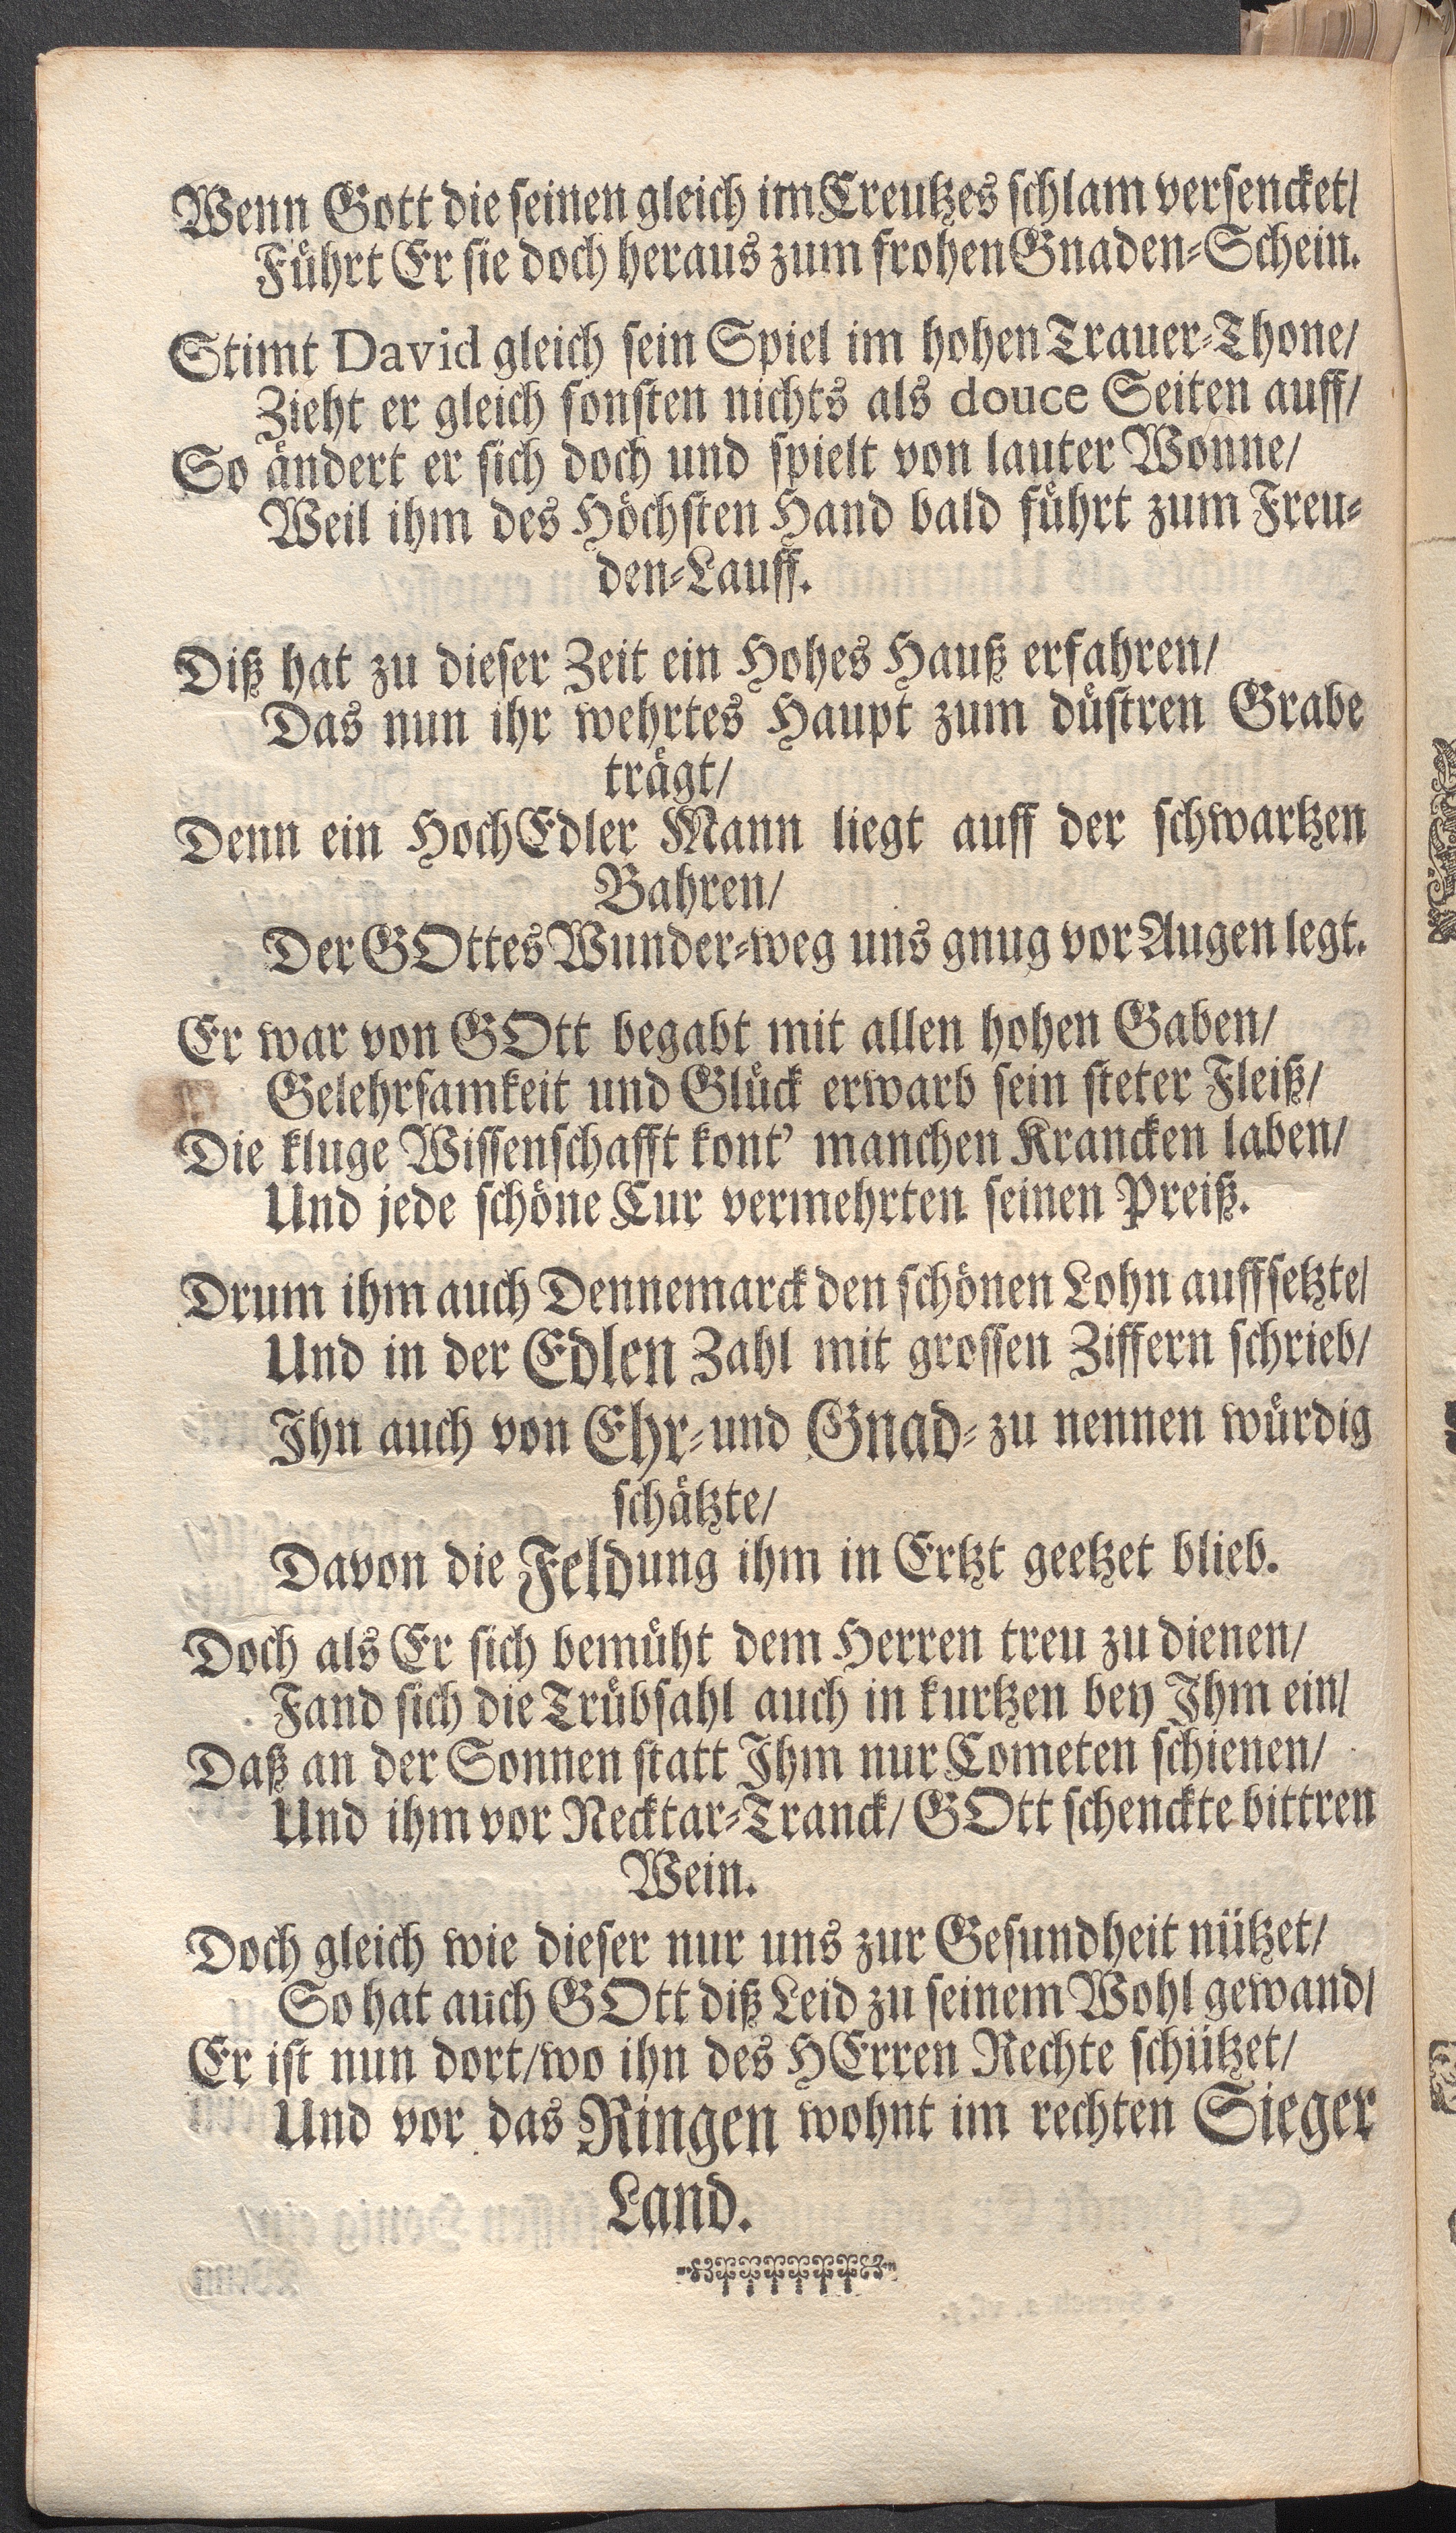 Wenn Gott die seinen gleich im Creutzes schlam versencket/
Führt Er sie doch heraus zum frohen Gnaden-Schein.
Stimt David gleich sein Spiel im hohen Trauer-Thone/
Zieht er gleich sonsten nichts als douce Seiten auff/
So ändert er sich doch und spielt von lauter Wonne/
Weil ihm des Höchsten Hand bald führt zum Freu-
den-Lauff.
Diß hat zu dieser Zeit ein Hohes Hauß erfahren/
Das nun ihr wehrtes Haupt zum düstren Grabe
trägt/
Denn ein HochEdler Mann liegt auff der schwartzen
Bahren/
Der GOttes Wunder-weg uns gnug vor Augen legt.
Er war von GOtt begabt mit allen hohen Gaben/
Gelehrsamkeit und Glück erwarb sein steter Fleiß/
Die kluge Wissenschafft kont' manchen Krancken laben/
Und jede schöne Cur vermehrten seinen Preiß.
Drum ihm auch Dennemarck den schönen Lohn auffsetzte/
Und in der Edlen Zahl mit grossen Ziffern schrieb/
Ihn auch von Ehr- und Gnad- zu nennen würdig
schätzte/
Davon die Feldung ihm in Ertzt geetzet blieb.
Doch als Er sich bemüht dem Herren treu zu dienen/
Fand sich die Trübsahl auch in kurtzen bey Ihm ein/
Daß an der Sonnen statt Ihm nur Cometen schienen/
Und ihm vor Necktar-Tranck/ GOtt schenckte bittren
Wein.
Doch gleich wie dieser nur uns zur Gesundheit nützet/
So hat auch GOtt diß Leid zu seinem Wohl gewand/
Er ist nun dort/wo ihn des HErren Rechte schützet/
Und vor das Ringen wohnt im rechten Sieger
Land.